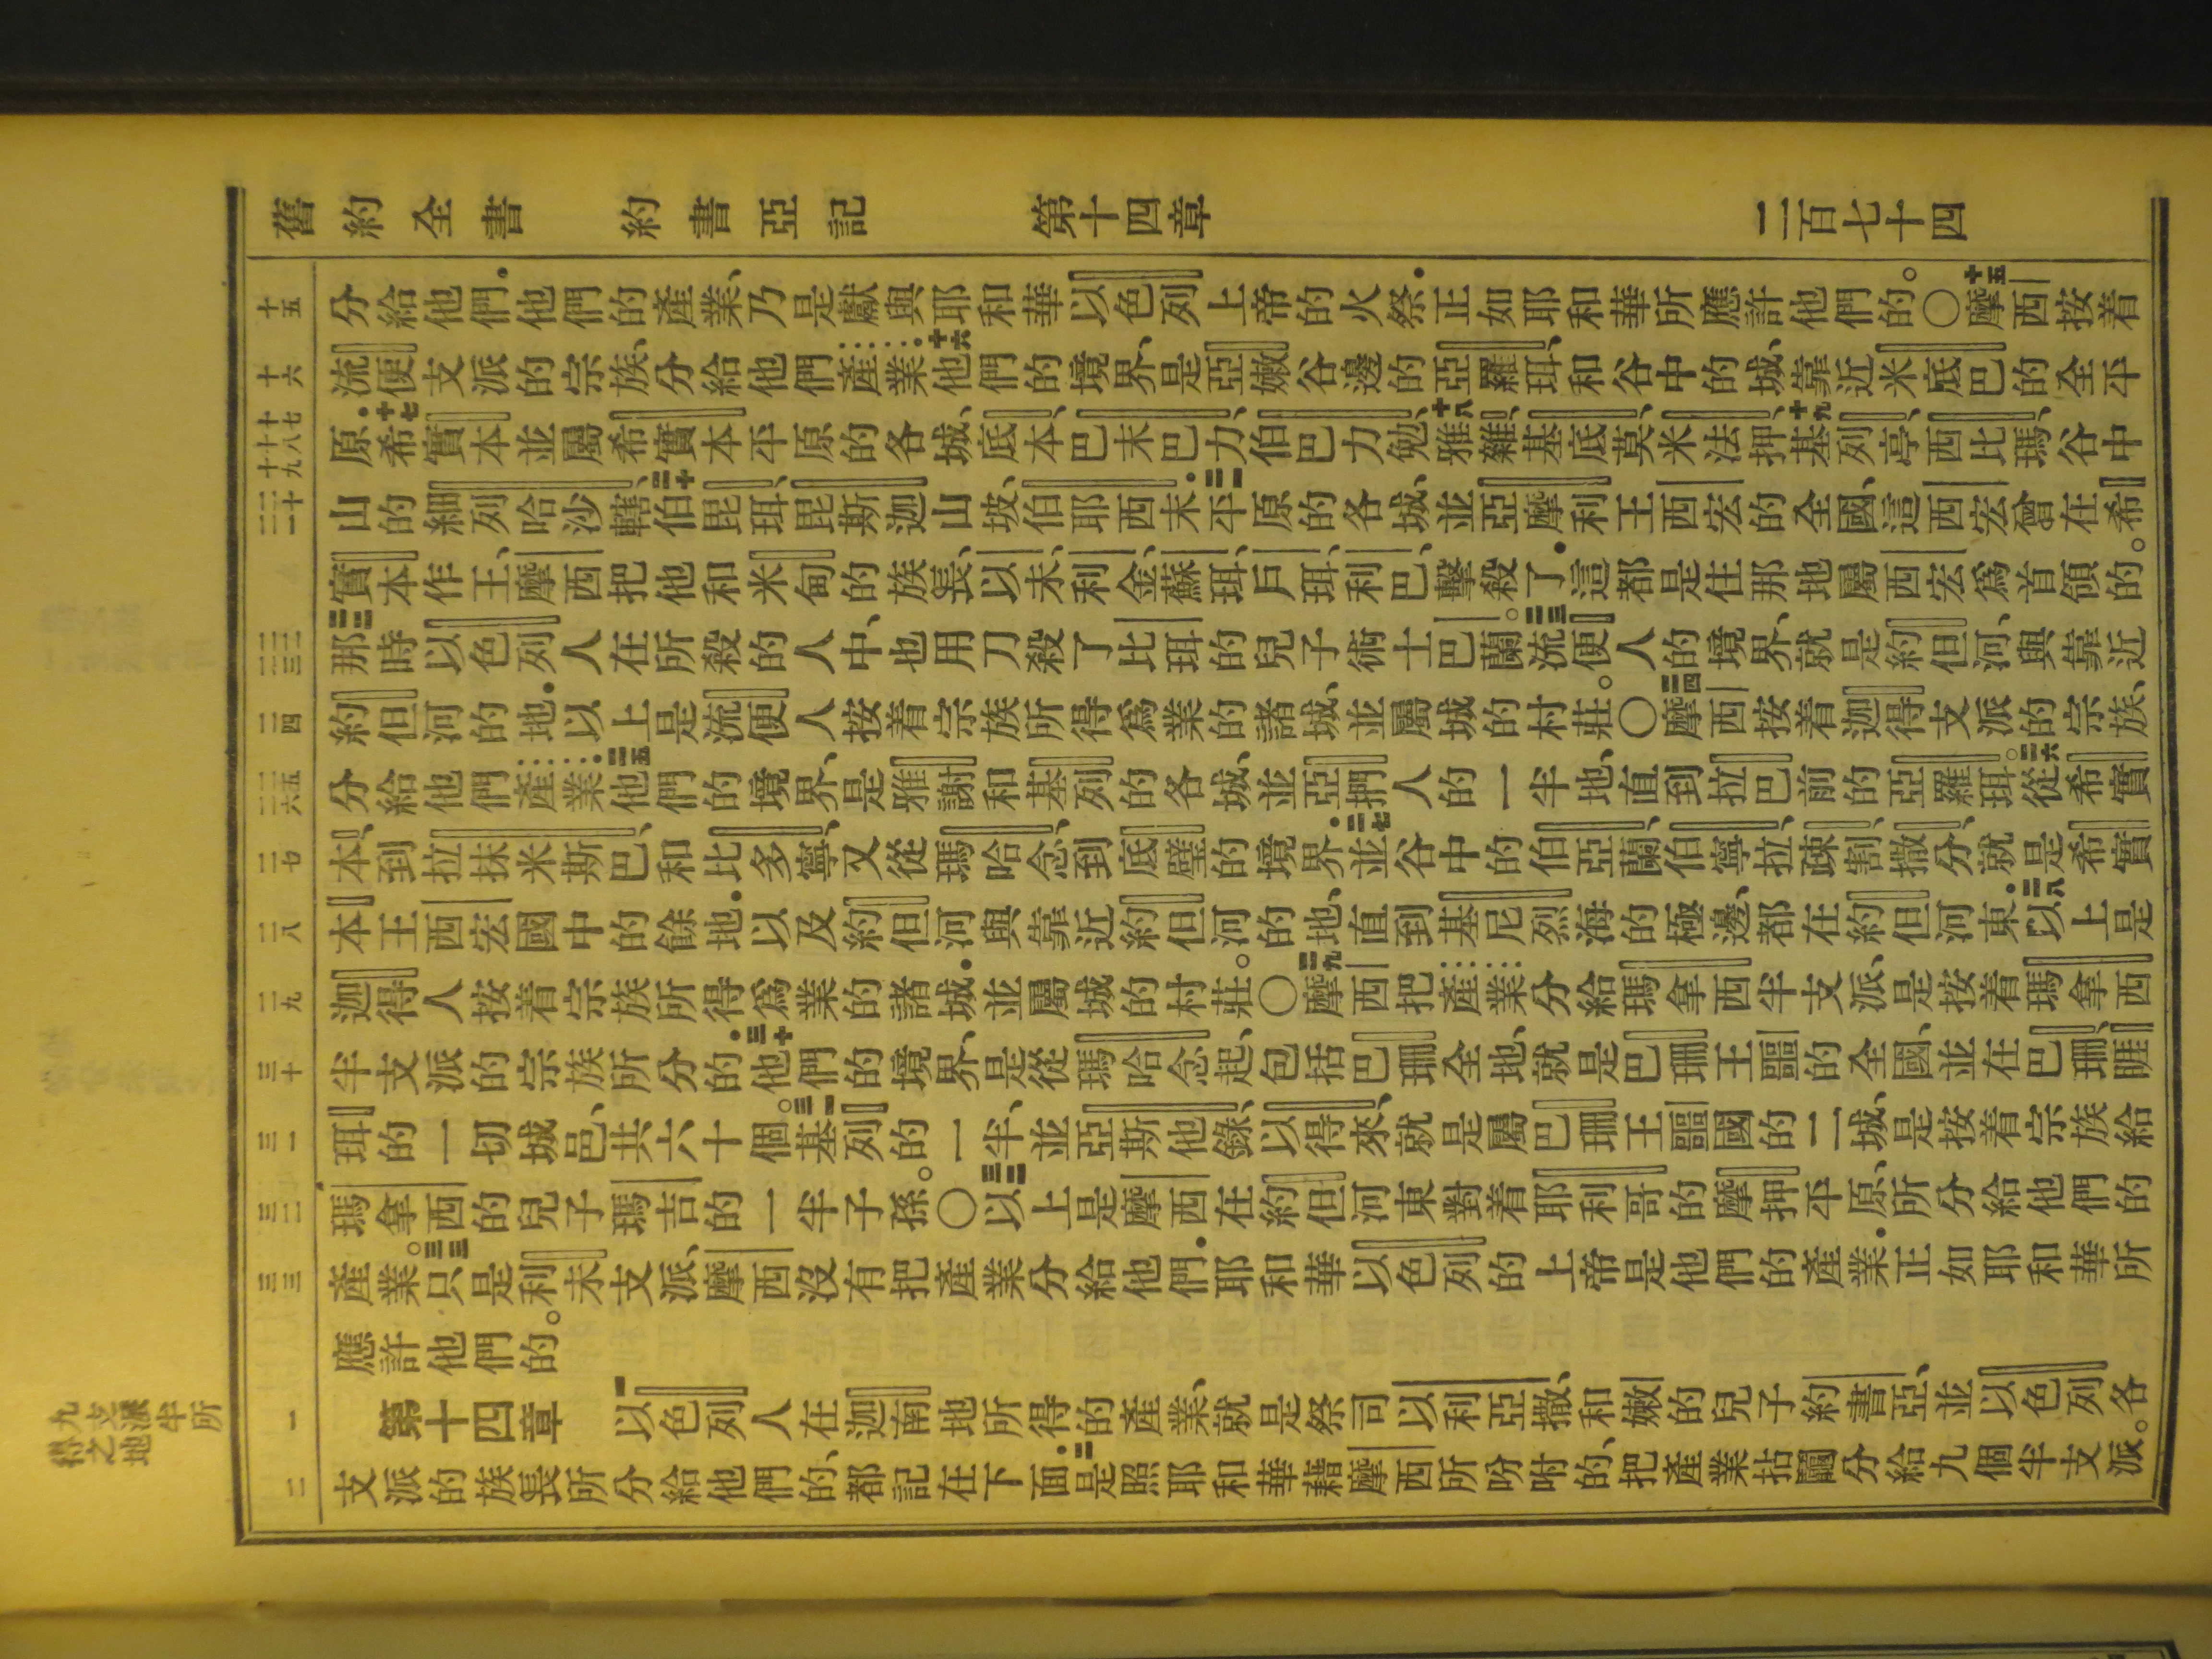 舊約全書 約書亞記 第十四章 二百七十四
十五 分給他們．他們的產業、乃是獻與耶和華以色列上帝的火祭．正如耶和華所應許他們的。〇十五摩西按着
十六 流便支派的宗族、分給他們產業．十六他們的境界、是亞嫩谷邊的亞羅珥、和谷中的城、靠近米底巴的全平
十七 十八 十九 原．十七希實本並屬希實本平原的各城、底本、巴末巴力、伯巴力勉、十八雅雜、基底莫、米法押、十九基列亭、西比瑪、谷中
二十 二一 山的細列哈沙轄、二十伯毘珥、毘斯迦山坡、伯耶西末．二一平原的各城、並亞摩利王西宏的全國、這西宏曾在希
實本作王、摩西把他和米甸的族長、以未、利金、蘇珥、戶珥、利巴、擊殺了．這都是住那地屬西宏爲首領的。
二二 二三 二二那時以色列人在所殺的人中、也用刀殺了比珥的兒子術士巴蘭。二三流便人的境界、就是約但河、與靠近
二四 約但河的地．以上是流便人按着宗族所得爲業的諸城、並屬城的村莊。〇二四摩西按着迦得支派的宗族、
二五 二六 分給他們產業．二五他們的境界、是雅謝和基列的各城、並亞捫人的一半地、直到拉巴前的亞羅珥。二六從希實
二七 本、到拉抹米斯巴、和比多寧、又從瑪哈念到底璧的境界．二七並谷中的伯亞蘭、伯寧拉、疎割、撒分、就是希實
二八 本王西宏國中的餘地．以及約但河與靠近約但河的地、直到基尼烈海的極邊、都在約但河東．二八以上是
二九 迦得人按着宗族所得爲業的諸城．並屬城的村莊。〇二九摩西把產業分給瑪拿西半支派、是按着瑪拿西
三十 半支派的宗族所分的．三十他們的境界、是從瑪哈念起、包括巴珊全地、就是巴珊王噩的全國、並在巴珊、睚
三一 珥的一切城邑、共六十個。三一基列的一半、並亞斯他錄、以得來、就是屬巴珊王噩國的二城、是按着宗族給
三二 瑪拿西的兒子瑪吉的一半子孫。〇三二以上是摩西在約但河東對着耶利哥的摩押平原、所分給他們的
三三 產業。三三只是利未支派、摩西沒有把產業分給他們．耶和華以色列的上帝是他們的產業．正如耶和華所
應許他們的。
九支派半所得之地
一 第十四章 一以色列人在迦南地所得的產業、就是祭司以利亞撒、和嫩的兒子約書亞、並以色列各
二 支派的族長所分給他們的、都記在下面．二是照耶和華藉摩西所吩咐的、把產業拈鬮分給九個半支派。